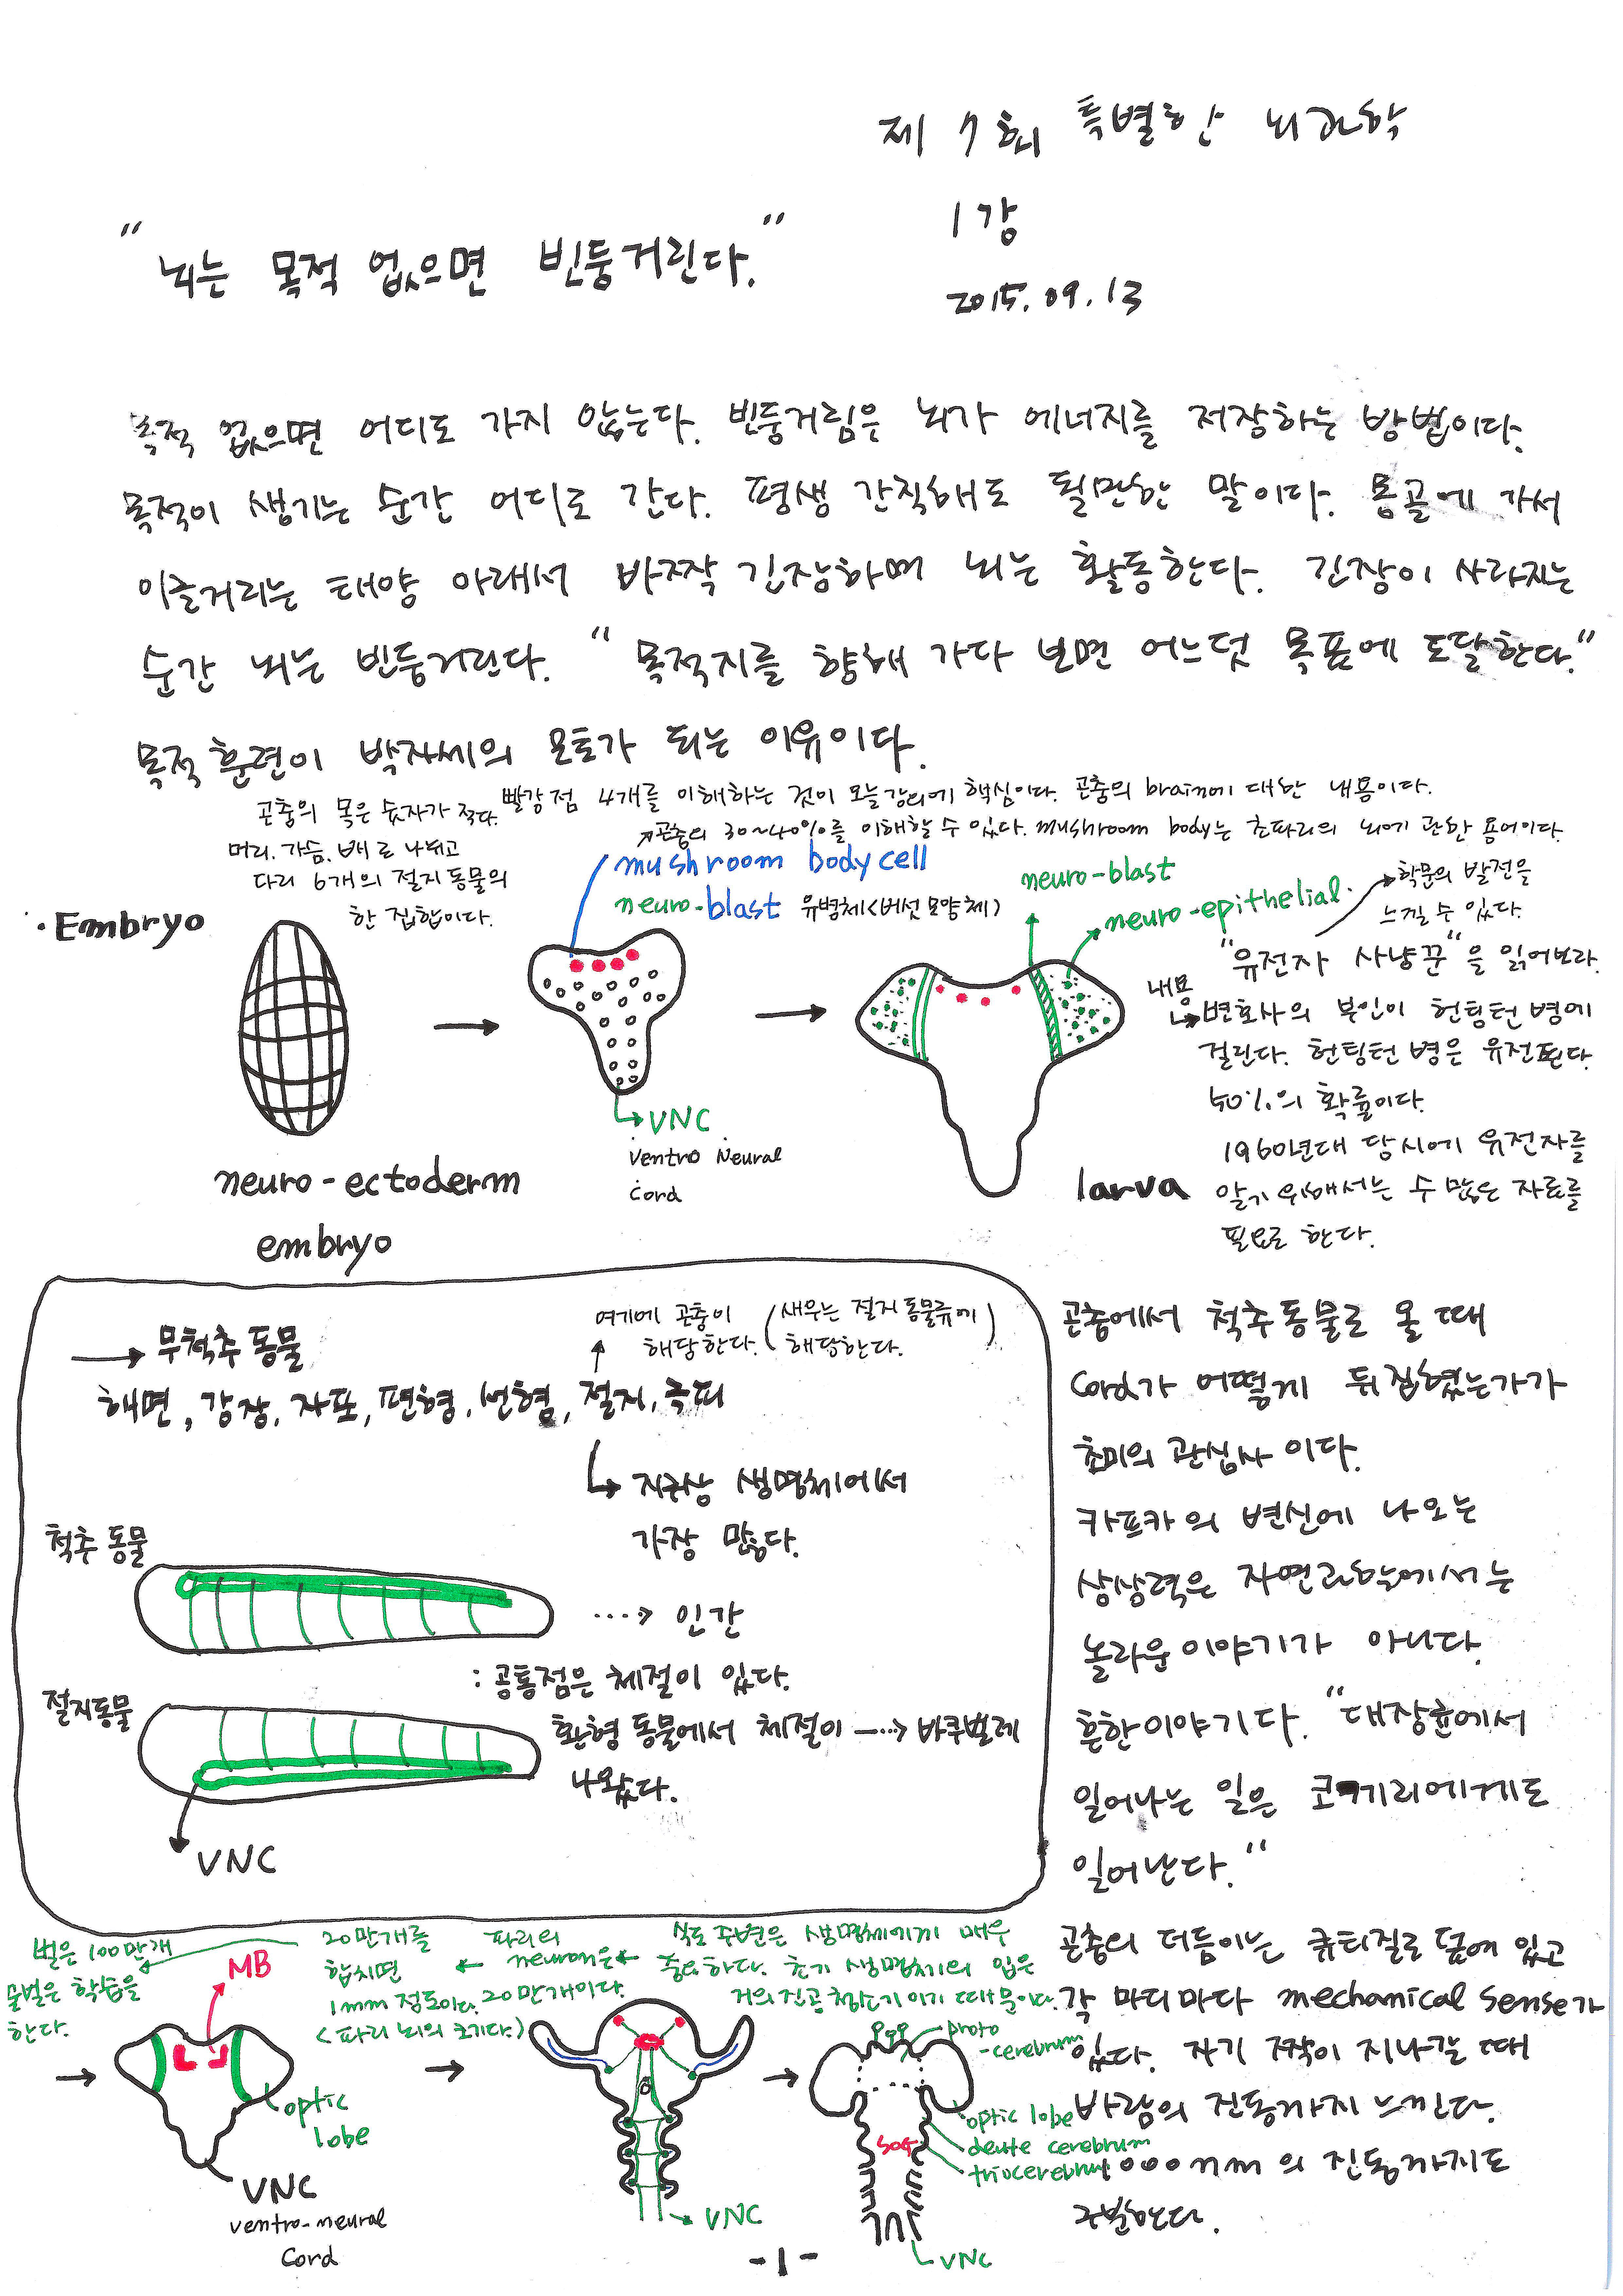 제 7회 특별한 뇌과학
1강
2015.09.13
"뇌는 목적 없으면 빈둥거린다."
목적 없으면 어디도 가지 않는다. 빈둥거림은 뇌가 에너지를 저장하는 방법이다.
목적이 생기는 순간 어디로 간다. 평생 간직해도 될만한 말이다. 몽골에 가서
이글거리는 태양 아래서 바짝 긴장하며 뇌는 활동한다. 긴장이 사라지는
순간 뇌는 빈둥거린다. "목적지를 향해 가다 보면 어느덧 목표에 도달한다."
목적 훈련이 박자세의 모토가 되는 이유이다.
곤충의 목은 숫자가 적다.
머리. 가슴. 배로 나뉘고
다리 6개의 절지동물의
한 집합이다.
빨강 점 4개를 이해하는 것이 오늘 강의에 핵심이다. 곤충의 brain에 대한 내용이다.
곤충의 30~40%를 이해할 수 있다. mushroom body는 초파리의 뇌에 관한 용어이다.
mushroom body cell
neuro-blast 유병체<버섯모양체>
neuro-blast
neuro-epithelial.
학문의 발전을
느낄 수 있다.
· Embryo
neuro-ectoderm
embryo
VNC
Ventro Neural
Cord
larva
"유전자 사냥꾼"을 읽어보라.
내용
변호사의 부인이 헌팅턴 병에
걸린다. 헌팅턴 병은 유전된다.
50%의 확률이다.
1960년대 당시에 유전자를
알기 위해서는 수 많은 자료를
필요로 한다.
무척추 동물
해면, 강장, 자포, 편형, 선형, 절지, 극피
여기에 곤충이
해당한다.
(새우는 절지동물류에
해당한다.)
지구상 생명체에서
가장 많다.
척추 동물
인간
: 공통점은 체절이 있다.
절지동물
환형 동물에서 체절이
나왔다.
바퀴벌레
VNC
곤충에서 척추동물로 올 때
Cord가 어떻게 뒤집혔는가가
초미의 관심사 이다.
카프카의 변신에 나오는
상상력은 자연과학에서는
놀라운 이야기가 아니다.
흔한 이야기다. "대장균에서
일어나는 일은 코끼리에게도
일어난다."
곤충의 더듬이는 큐티질로 덮여 있고
각 마디마다 mechanical sense가
있다. 자기 짝이 지나갈 때
바람의 진동까지 느낀다.
1000nm의 진동까지도
구별한다.
벌은 100만개
꿀벌은 학습을
한다.
20만개를
합치면
1mm 정도이다.
<파리 뇌의 크기다.>
파리의
neuron은
20만개이다.
식도 주변은 생명체에게 매우
중요하다. 초기 생명체의 입은
거의 진공청소기이기 때문이다.
MB
optic
lobe
VNC
ventro-neural
Cord
VNC
proto
-cerebrum
optic lobe
SOG
deute cerebrum
triocerebrum
VNC
-1-